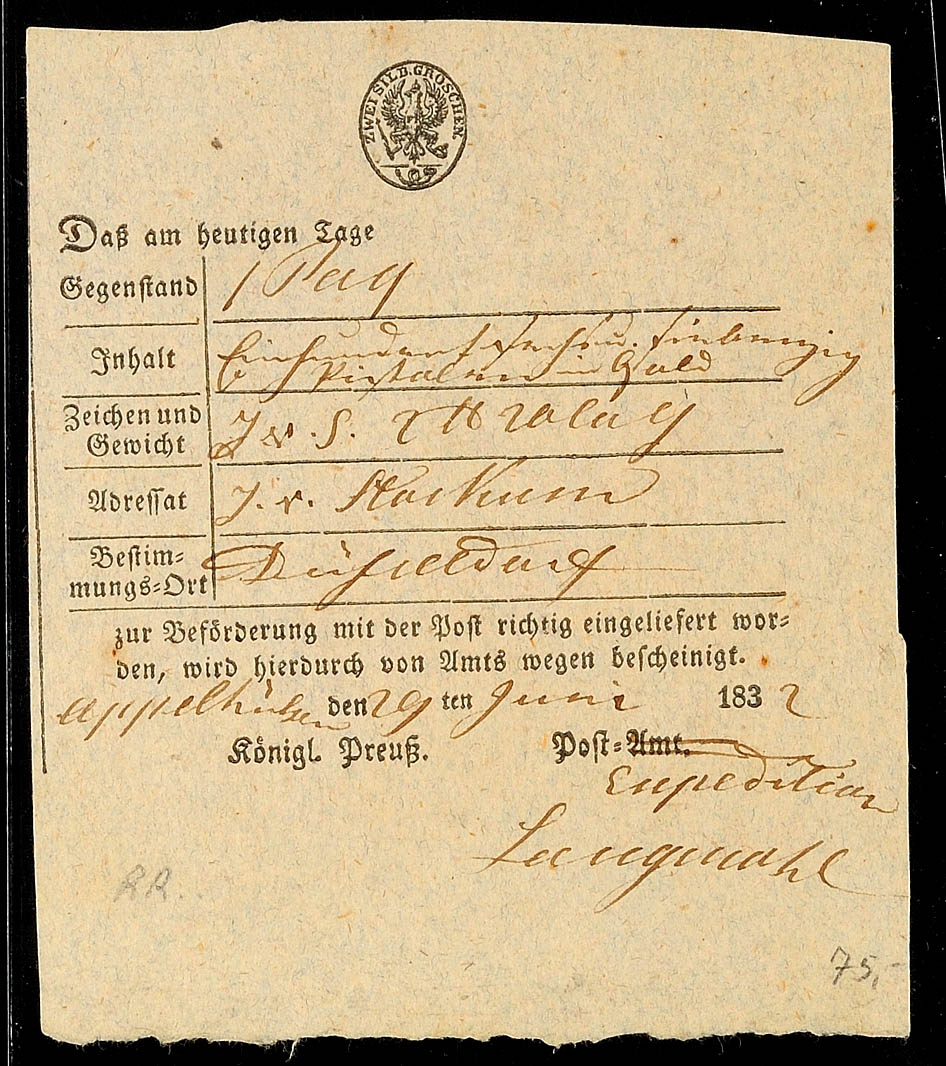 ZWEI SILB. GROSCHEN.
Daß am heutigen Tage
Gegenstand 1 Paq
Inhalt Einhundert sechs u. siebenzig
Pistolen in Gold
Zeichen und
Gewicht J v. S.
Adressat J. v. Stockum
Bestim-
mungs-Ort Düsseldorf
zur Beförderung mit der Post richtig eingeliefert wor-
den, wird hierdurch von Amts wegen bescheinigt.
Appelhülsen den 29 ten Juni 1832
Königl. Preuß. Post-Amt.
Expedition
Langmahl
RR.
75,-